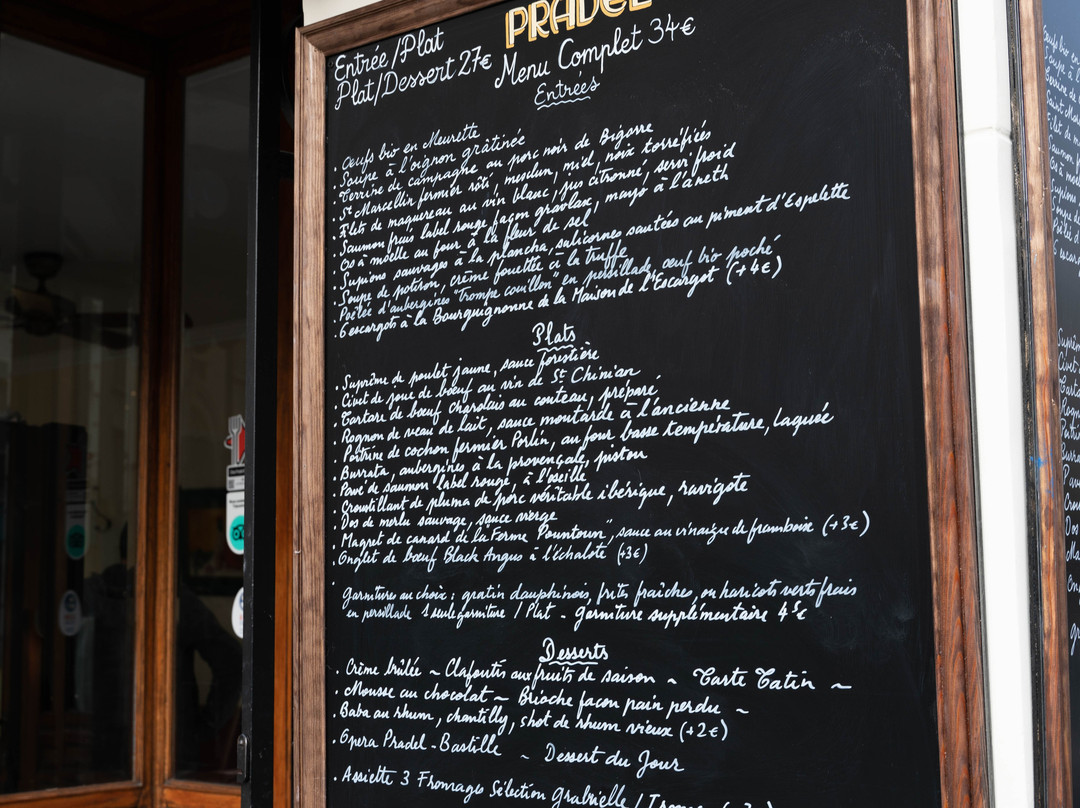 PRADEL
Entrée/Plat
Plat/Dessert 27€ Menu Complet 34€
Entrées
. Oeufs bio en Meurette
. Soupe à l'oignon gratinée
. Terrine de campagne au porc noir de Bigorre
. St Marcellin fermier rôti, mesclun, miel, noix torréfiées
. Filets de maquereau au vin blanc, jus citronné, servi froid
. Saumon frais label rouge façon gravlax, mayo à l'aneth
. Os à moelle au four à la fleur de sel
. Supions sauvages à la plancha, salicornes sautées au piment d'Espelette
. Soupe de potiron, crème fouettée à la truffe
. Poêlée d'aubergines "Trompe couillon" en persillade œuf bio poché
. 6 escargots à la Bourguignonne de la Maison de l'Escargot (+4€)
Plats
. Suprême de poulet jaune, sauce forestière
. Civet de joue de bœuf au vin de St Chinian
. Tartare de bœuf charolais au couteau, préparé
. Rognon de veau de lait, sauce moutarde à l'ancienne
. Poitrine de cochon fermier Porlin, au four basse température, Laquée
. Burrata, aubergines à la provençale, pistou
. Pavé de saumon label rouge, à l'oseille
. Croustillant de pluma de porc véritable ibérique, ravigote
. Dos de merlu sauvage, sauce vierge
. Magret de canard de la Ferme Pountoun", sauce au vinaigre de framboise (+3€)
. Onglet de bœuf Black Angus à l'échalote (+3€)
.
Garnitures au choix : gratin dauphinois, frites fraîches, ou haricots verts frais
en persillade 1 seule garniture / Plat - garniture supplémentaire 4,5€
Desserts
. Crème brûlée ~ Clafoutis aux fruits de saison ~ Tarte Tatin ~
. Mousse au chocolat ~ Brioche façon pain perdu ~
. Baba au rhum, chantilly, shot de rhum vieux (+2€)
. Opera Pradel-Bastille ~ Dessert du Jour
. Assiette 3 Fromages Sélection